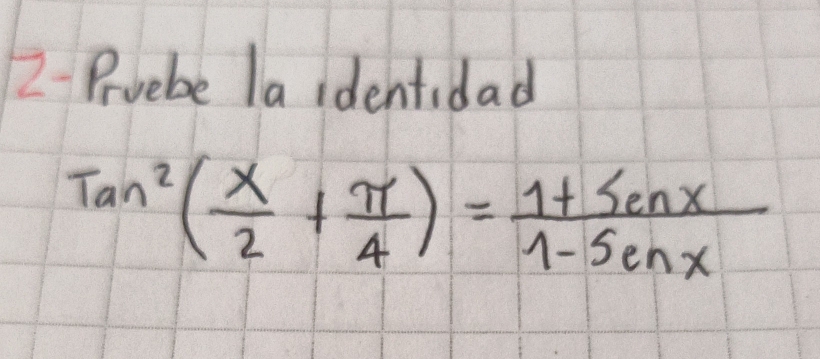 2- Pruebe la identidad
Tan²(x/2 + π/4) = 1+ Senx / 1- Senx